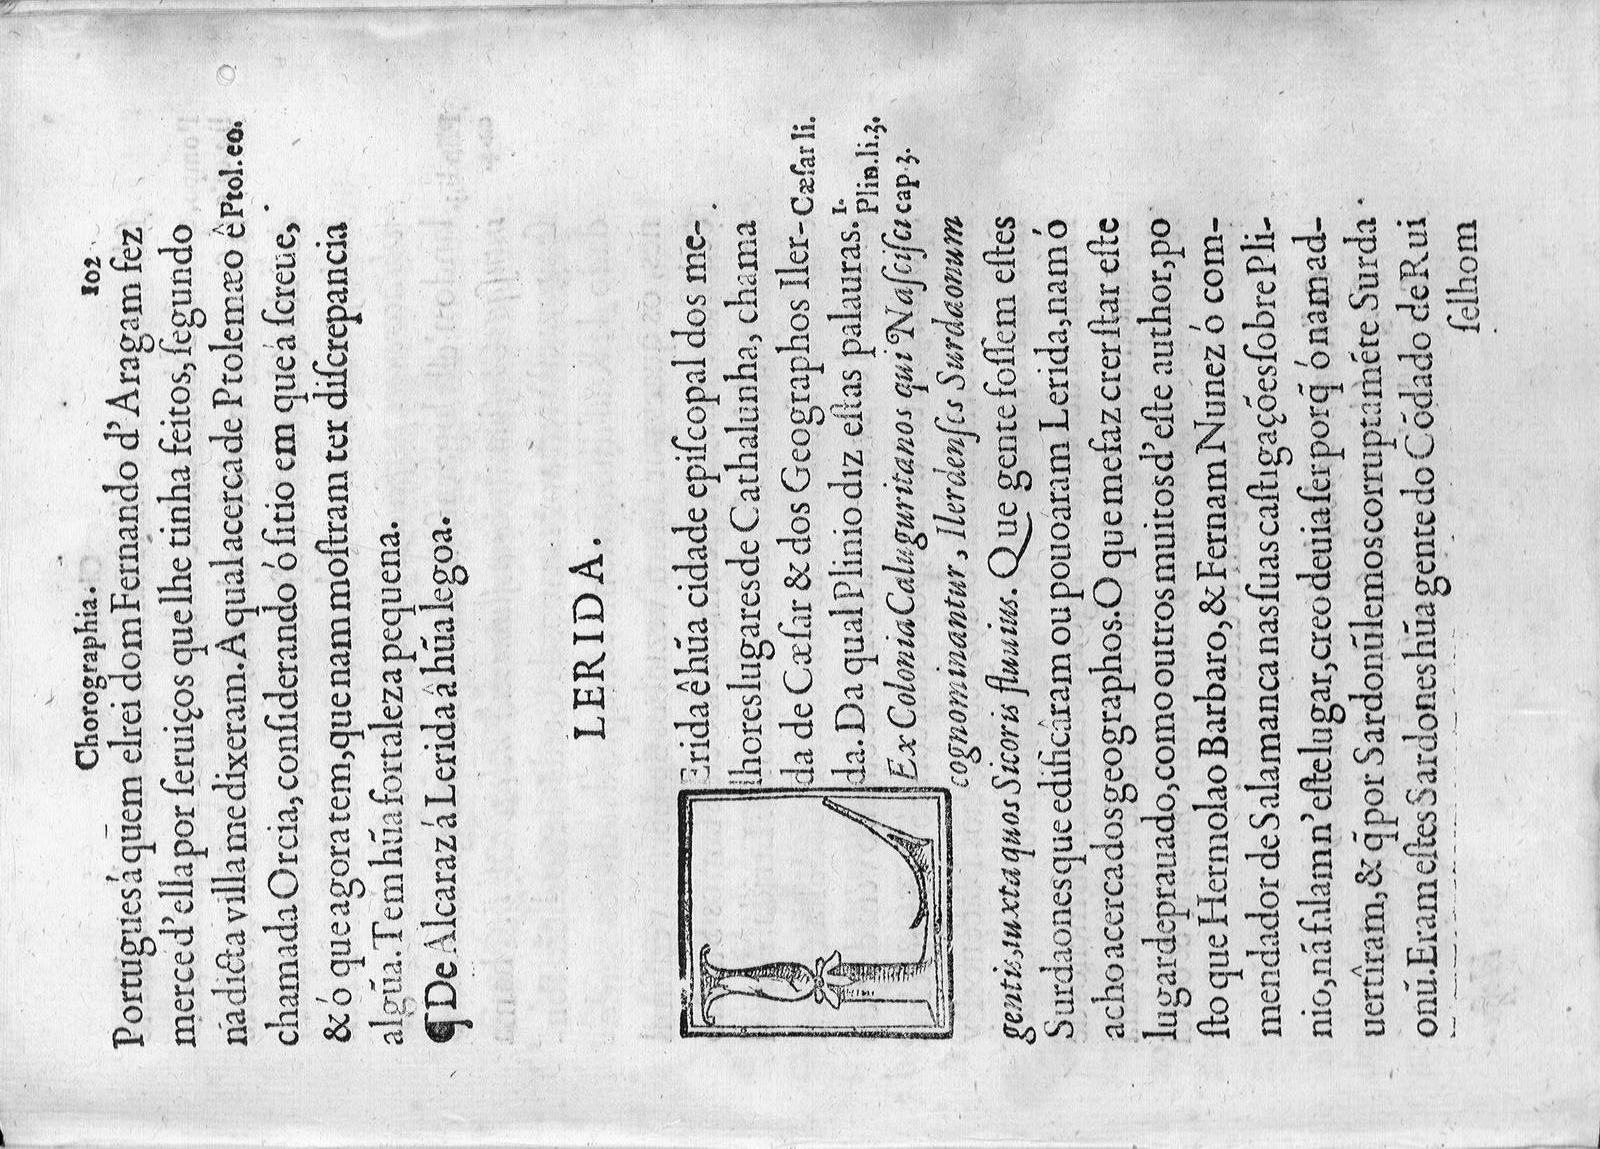 Chorographia. 102
Portugues á quem elrei dom Fernando d' Aragam fez
merce d' ella por ſeruiços que lhe tinha feitos, ſegundo
na dicta villa me dixeram. A qual acerca de Ptolemæo ê Ptol. eo.
chamada Orcia, conſiderando ó ſitio em que á ſcreue,
& ó que agora tem, que nam moſtram ter diſcrepancia
algũa. Tem hũa fortaleza pequena.
¶ De Alcaraz á Lerida â hũa legoa.
LERIDA.
LErida ê hũa cidade epiſcopal dos me-
lhores lugares de Cathalunha, chama
da de Cæſar & dos Geographos Iler- Cæſar li.
da. Da qual Plinio diz eſtas palauras. 1.
Plin. li. 3.
Ex Colonia Caluguritanos qui Naſciſci cap. 3.
cognominantur, Ilerdenſes Surdaonum
gentis, iuxta quos Sicoris fluuius. Que gente foſſem eſtes
Surdaones que edificâram ou pouoáram Lerida, nam ó
acho acerca dos geographos. O que me faz crer ſtar eſte
lugar deprauado, como outros muitos d' eſte author, po
ſto que Hermolao Barbaro, & Fernam Nunez ó com-
mendador de Salamanca nas ſuas caſtugações ſobre Pli-
nio, ná falam n' eſte lugar, creo deuia ſer porq̃ ó nam ad-
uertîram, & q̃ por Sardonũ lemos corruptaméte Surda
onũ. Eram eſtes Sardones hũa gente do Códado de Rui
ſelhom